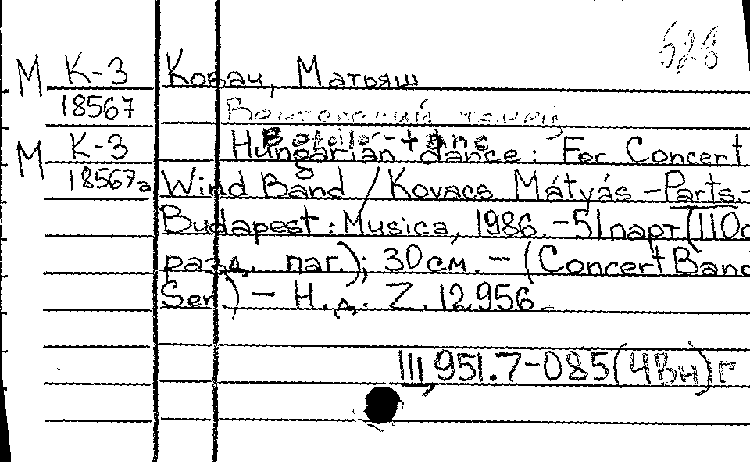 628
М К-3 Ковач, Матьяш
18567 Венгерский танец
М К-3 Hungarian dance: For Concert
18567а Wind Band / Kovacs Mátyás - Parts. -
Budapest: Musica, 1986. - 51 парт (110с
разд. паг.); 30 см. - (Concert Band
Ser.) - Н. д. Z. 12.956.
III, 951.7-085(4Вн)г